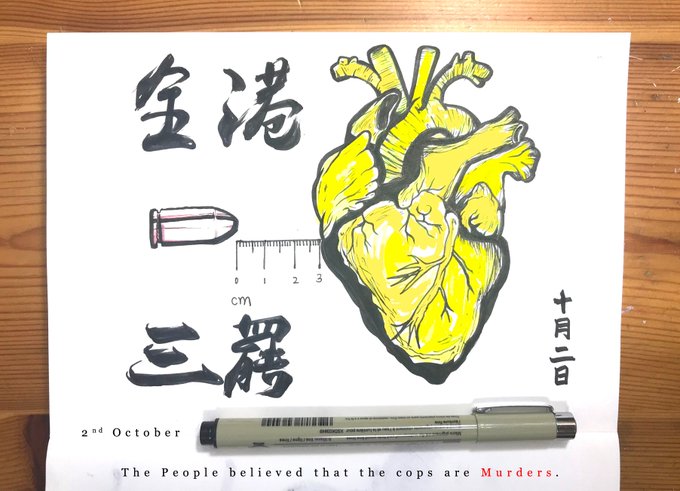 全港
0 1 2 3
cm
三罷
十月二日
2nd October
The People believed that the cops are Murders.